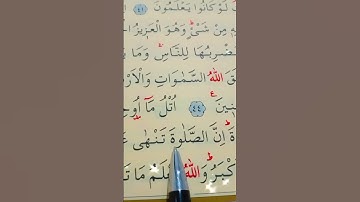 لَوْ كَانُوا يَعْلَمُونَ ﴿٤١﴾
مِنْ شَىْءٍ وَهُوَ الْعَزِيزُ
نَضْرِبُهَا لِلنَّاسِ وَمَا
اللّٰهُ السَّمٰوَاتِ وَالْاَرْ
﴿٤٤﴾ اُتْلُ مَٓا اُو۫حِ
اِنَّ الصَّلٰوةَ تَنْهٰى عَ
كْبَرُ وَاللّٰهُ يَعْلَمُ مَا تَ